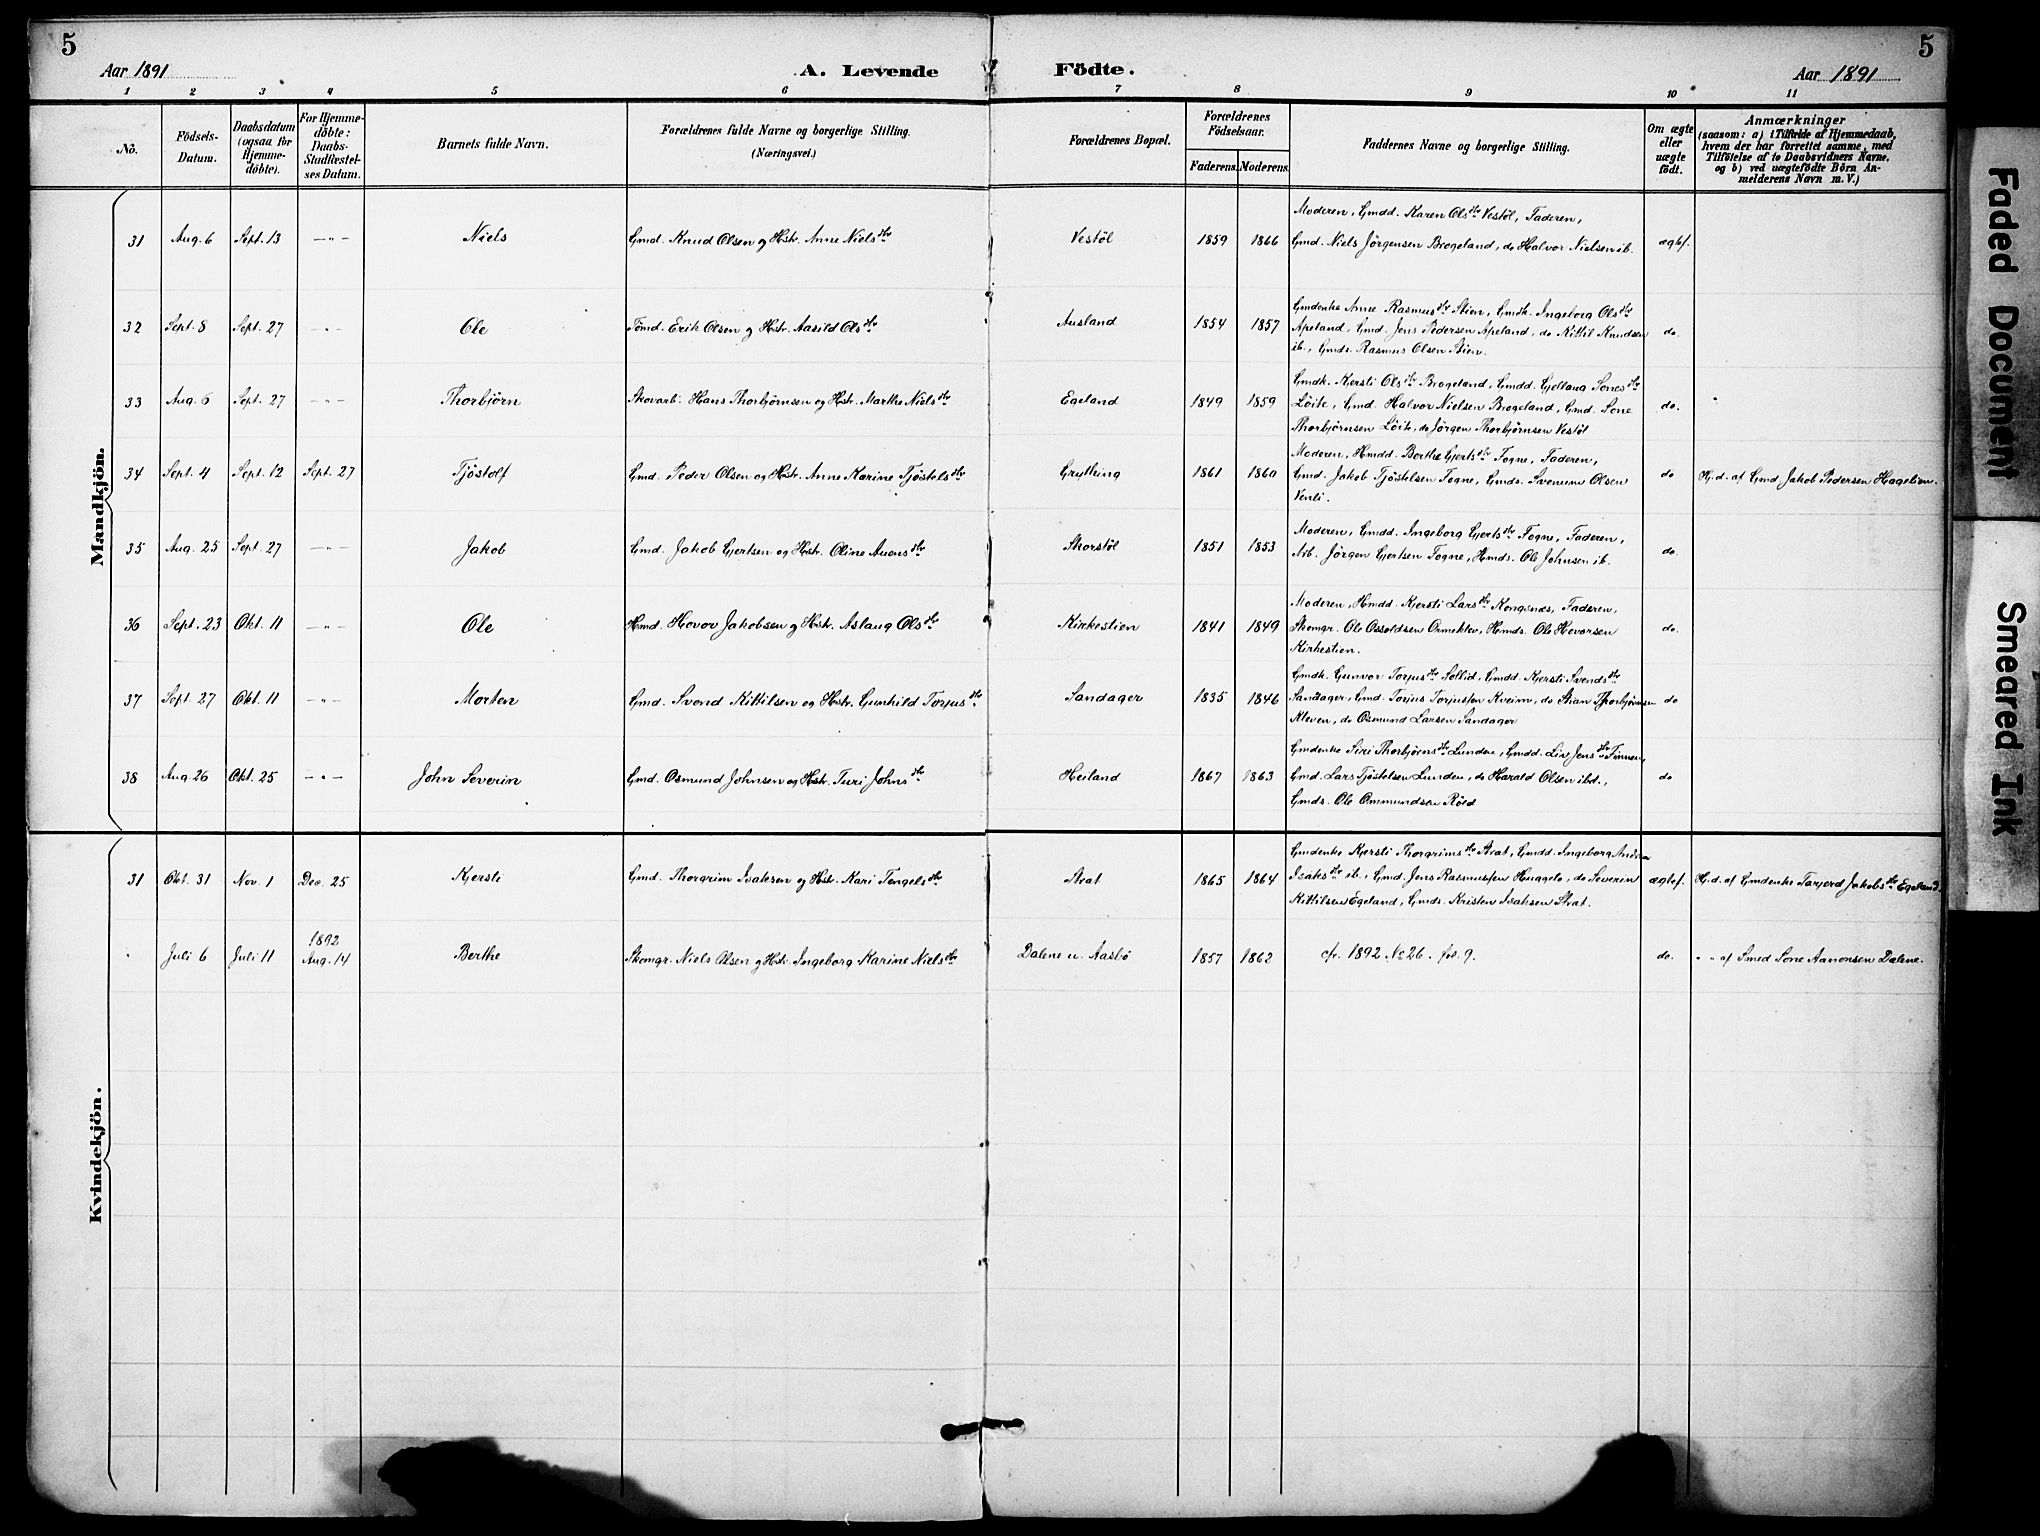 5
5
Aar 1891
A. Levende
Födte.
Aar 1891
1 2 3 4 5 6 7 8 9 10 11
No.
Födsels-
Datum.
Daabsdatum
(ogsaa for
Hjemme-
döbte).
For Hjemme-
döbte:
Daabs-
Stadfæstel-
ses Datum.
Barnets fulde Navn.
Forældrenes fulde Navne og borgerlige Stilling.
(Næringsvei.)
Forældrenes Bopæl.
Forældrenes
Födselsaar.
Faderens. Moderens.
Faddernes Navne og borgerlige Stilling.
Om ægte
eller
uægte
födt.
Anmærkninger
(saasom: a) i Tilfælde af Hjemmedaab,
hvem der har forrettet samme, med
Tilföielse af to Daabsvidners Navne,
og b) ved uægtefödte Börn An-
melderens Navn m. V.)
Mandkjön.
Moderen, Gmdd. Karen Olsdtr Vestöl, Faderen,
31 Aug. 6 Sept. 13 —"— Niels Gmd. Knud Olsen og Hstr. Anne Nielsdtr Vestöl 1859 1866 Gmd. Niels Jörgensen Brogeland, do Halvor Nielsen ib. ægtef.
Gmdenke Anne Rasmusdtr Stien, Gmdk. Ingeborg Olsdtr
32 Sept. 8 Sept. 27 —"— Ole Tömd. Erik Olsen og Hstr. Aasild Olsdtr Ausland 1854 1857 Apeland, Gmd. Jens Pedersen Apeland, do Kittil Knudsen do.
ib., Gmds. Rasmus Olsen Stien.
Gmdk. Kersti Olsdtr Brogeland, Gmdd. Gjellaug Sonesdtr
33 Aug. 6 Sept. 27 —"— Thorbjörn Skovarb. Hans Thorbjörnsen og Hstr. Marthe Nielsdtr Egeland 1849 1859 Löite, Gmd. Halvor Nielsen Brogeland, Gmd. Sone do.
Thorbjörnsen Löite, do Jörgen Thorbjörnsen Vestöl
Moderen, Hmdd. Berthe Gjertsdtr Fogne, Faderen,
34 Sept. 4 Sept. 12 Sept. 27 Tjöstolf Gmd. Peder Olsen og Hstr. Anne Karine Tjöstelsdtr Gryting 1861 1860 Gmd. Jakob Tjöstelsen Fogne, Gmds. Svenum Olsen do H.d. af Gmd. Jakob Pedersen Hagelien.
Venli.
Moderen, Gmdd. Ingeborg Gjertsdtr Fogne, Faderen,
35 Aug. 25 Sept. 27 —"— Jakob Gmd. Jakob Gjertsen og Hstr. Oline Auensdtr Skorstöl 1851 1853 Arb. Jörgen Gjertsen Fogne, Hmds. Ole Johnsen ib. do.
Moderen, Hmdd. Kjersti Larsdtr Kongsnæs, Faderen,
36 Sept. 23 Okt. 11 —"— Ole Hmd. Hovor Jakobsen og Hstr. Aslaug Olsdtr Kirkestien 1841 1849 Skomgr. Ole Ossoldsen Ormeklev, Hmds. Ole Hovorsen do.
Kirkestien.
Gmdk. Gunvor Torjusdtr Sollid, Gmdd. Kjersti Svendsdtr
37 Sept. 27 Okt. 11 —"— Morten Gmd. Svend Kittilsen og Hstr. Gunhild Torjusdtr Sandager 1835 1846 Sandager, Gmd. Torjus Torjussen Kveim, do Stian Thorbjörnsen do
Kleven, do Osmund Larsen Sandager
Gmdenke Siri Thorbjörnsdtr Lunden, Gmdd. Liv Jensdtr Finnen,
38 Aug. 26 Okt. 25 —"— John Severin Gmd. Osmund Johnsen og Hstr. Turi Johnsdtr Heiland 1867 1863 Gmd. Lars Tjöstelsen Lunden, do Harald Olsen ibd., do
Gmds. Ole Ommundsen Röed
Kvindekjön.
Gmdenke Kjersti Thorgrimsdtr Strat, Gmdd. Ingeborg Andrea
31 Okt. 31 Nov. 1 Dec. 25 Kjersti Gmd. Thorgrim Isaksen og Hstr. Kari Tengelsdtr Strat 1865 1864 Isaksdtr ib., Gmd. Jens Rasmussen Huggelo, do Severin ægtef. H.d. af Gmdenke Tarjerd Jakobsdtr Egeland.
Kittilsen Egeland, Gmds. Kristen Isaksen Strat.
" Juli 6 Juli 11 1892 Aug. 14 Berthe Skomgr. Niels Olsen og Hstr. Ingeborg Karine Nielsdtr Dalene u. Aasbö 1857 1862 cfr. 1892 No 26. fol. 9. do. " " af Smed Sone Aanonsen Dalene.
Faded Document
Smeared Ink